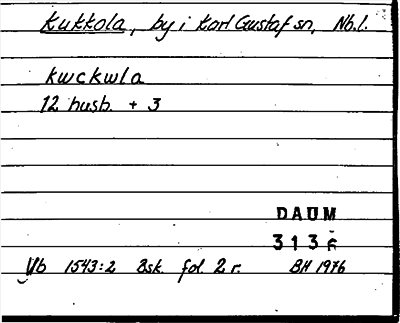 Kukkola, by i Karl Gustaf sn, Nb.l.
kwckwla
12 husb. + 3
DAUM
3136
Vb 1543:2 Bsk. fol. 2 r. BH 1976